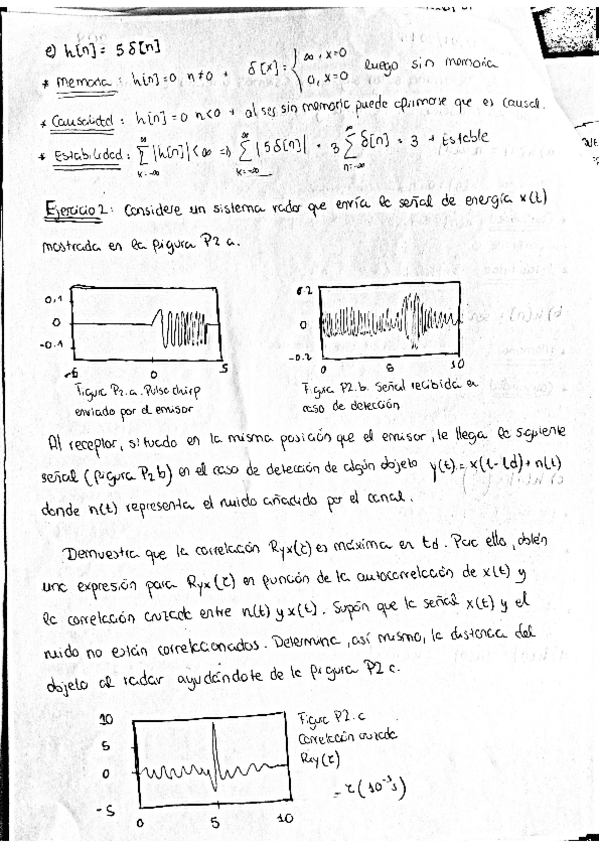 e) h[n] = 5 δ[n]
* Memoria : h[n]=0, n≠0 → δ[x] = { ∞, x=0 luego sin memoria
0, x=0
* Causalidad : h[n]=0 n<0 → al ser sin memoria puede afirmarse que es causal.
* Estabilidad : ∞ Σ k=-∞ |h[n]| < ∞ => ∞ Σ k=-∞ |5δ[n]| = 3 ∞ Σ n=-∞ δ[n] = 3 → Estable
Ejercicio 2: Considere un sistema radar que envía la señal de energía x(t)
mostrada en la figura P2 a.
0,1
0
-0.1
-5
0
5
Figura P2.a. Pulso chirp
enviado por el emisor
0.2
0
-0.2
0
8
10
Figura P2.b. Señal recibida en
caso de detección
Al receptor, situado en la misma posición que el emisor, le llega la siguiente
señal (figura P2 b) en el caso de detección de algún objeto y(t) = x(t-td)+n(t)
donde n(t) representa el ruido añadido por el canal.
Demuestra que la correlación Ryx(τ) es máxima en td. Para ello, obtén
una expresión para Ryx(τ) en función de la autocorrelación de x(t) y
la correlación cruzada entre n(t) y x(t). Supón que la señal x(t) y el
ruido no están correlacionados. Determina, así mismo, la distancia del
objeto al radar ayudándote de la figura P2c.
10
5
0
-5
0
5
10
Figura P2.c
Correlación cruzada
Rxy(τ)
τ(10⁻³s)